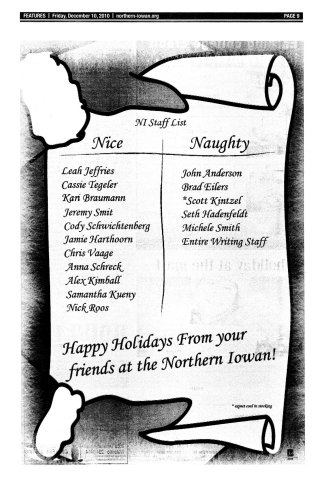 FEATURES | Friday, December 10, 2010 | northern-iowan.org PAGE 9
NI Staff List
Nice
Naughty
Leah Jeffries
Cassie Tegeler
Kari Braumann
Jeremy Smit
Cody Schwichtenberg
Jamie Harthoorn
Chris Vaage
Anna Schreck
Alex Kimball
Samantha Kueny
Nick Roos
John Anderson
Brad Eilers
*Scott Kintzel
Seth Hadenfeldt
Michele Smith
Entire Writing Staff
Happy Holidays From your
friends at the Northern Iowan!
* expect coal in stocking